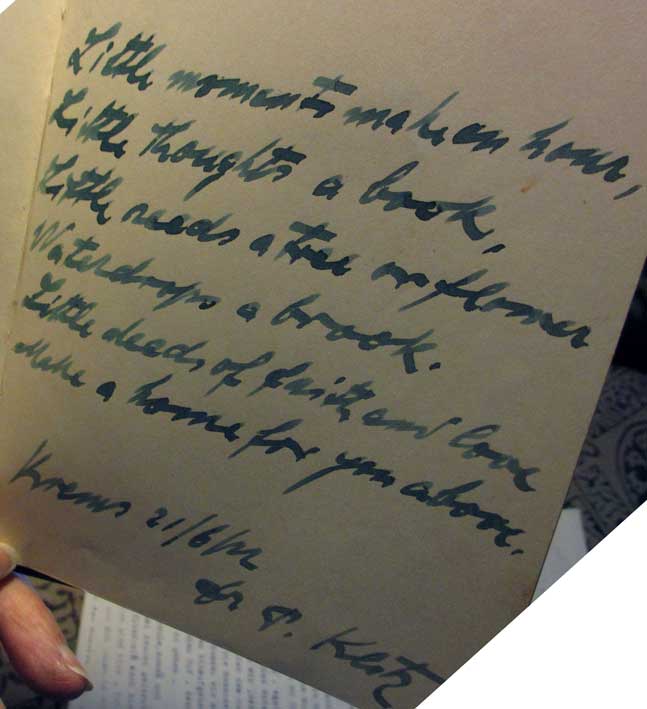 Little moments make an hour,
Little thoughts a book,
Little seeds a tree or flower
Waterdrops a brook.
Little deeds of faith and love
Make a home for you above.
Krems 21/6/12
Dr P.